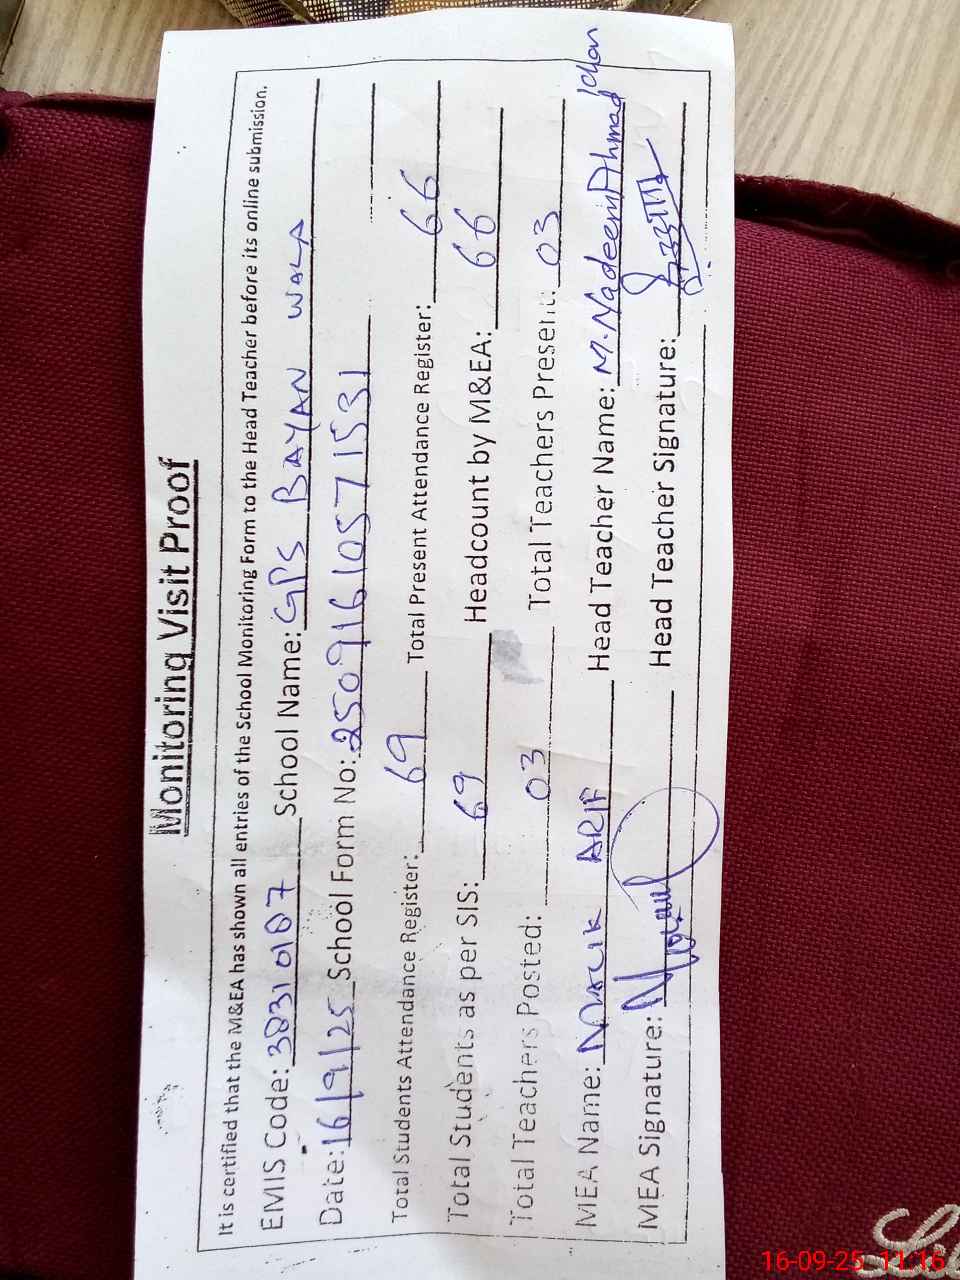 Monitoring Visit Proof
It is certified that the M&EA has shown all entries of the School Monitoring Form to the Head Teacher before its online submission.
EMIS Code: 38310187 School Name: GPS BAYAN WALA
Date: 16/9/25 School Form No: 25091610571531
Total Students Attendance Register: 69 Total Present Attendance Register: 66
Total Students as per SIS: 69 Headcount by M&EA: 66
Total Teachers Posted: 03 Total Teachers Present: 03
MEA Name: MALIK ARIF Head Teacher Name: M. Nadeem Ahmad Khan
MEA Signature: Head Teacher Signature:
16-09-25 11:16